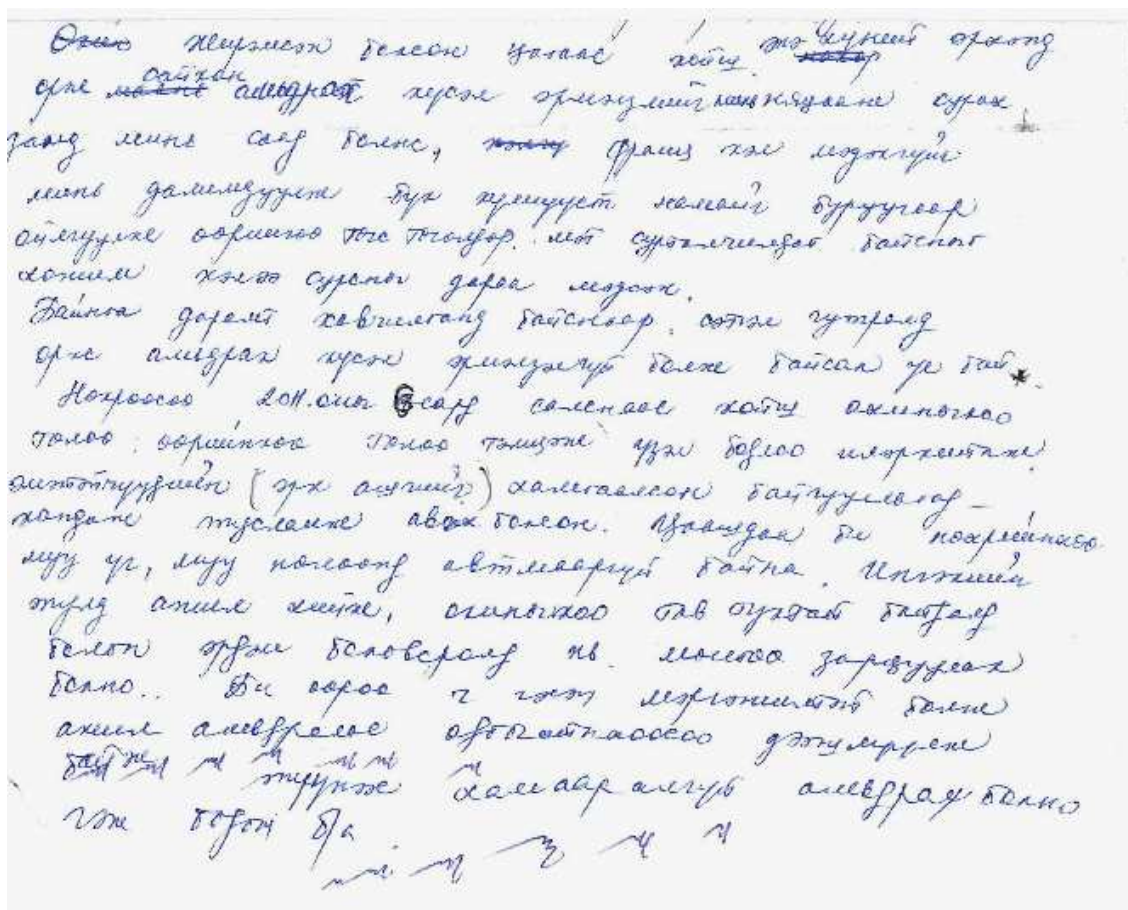 жирэмсэн болсон цагаас хойш энэ хүний орхонд
орж сайхан амьдрах хүсэл эрмэлзлийг минь няцааж сурах
заанд минь саад болж, франц хэл мэдэхгүй
минь далимдуулж бүх хүмүүст намайг буруугаар
ойлгуулж өөрийгөө төгс төгөлдөр мэт сурталчилдаг байсныг
хожим хэлээ сурсны дараа мэдсэн.
Байнга дарамт хавчилганд байснаар сэтгэл гутралд
орж амьдрах хүсэл эрмэлзэлгүй болж байсан үе бий.
Нөхрөөсөө 2011.оны 6 сард салснаас хойш охиныхоо
төлөө өөрийнхөө төлөө тэмцэж үзэл бодлоо илэрхийлж
эмэгтэйчүүдийн (эрх ашгийг) хамгаалсан байгууллагад
хандаж тусламж авах болсон. Цаашдаа би нөхрийнхөө
муу үг, муу нөлөөнд автмааргүй байна. Ингэхийн
тулд ажил хийж, охиныхоо тав тухтай байдалд
болон эрдэм боловсролд нь мөнгөө зарцуулах
болно.. Би өөрөө ч гэсэн мэргэжилтэй болж
ажил амьдралаа
байж хамааралгүй амьдрах болно
гэж бодож б/а.